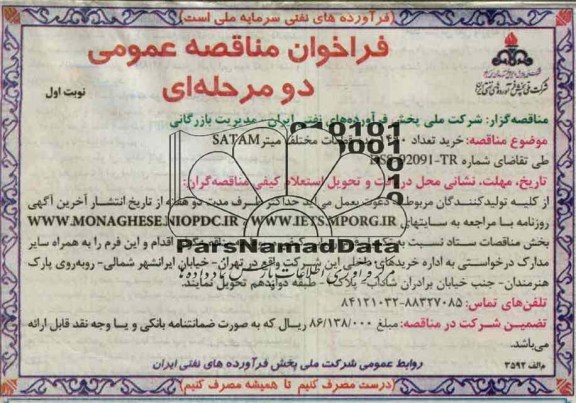 (فرآورده های نفتی سرمایه ملی است)
فراخوان مناقصه عمومی
دو مرحله‌ای
نوبت اول
مناقصه‌گزار: شرکت ملی پخش فرآورده‌های نفتی ایران - مدیریت بازرگانی
موضوع مناقصه: خرید تعداد قطعات مختلف میتر SATAM
طی تقاضای شماره 92091-TR
تاریخ، مهلت، نشانی محل دریافت و تحویل استعلام کیفی مناقصه‌گران:
از کلیه تولیدکنندگان مربوطه دعوت بعمل می‌آید حداکثر ظرف مدت دو هفته از تاریخ انتشار آخرین آگهی
روزنامه با مراجعه به سایتهای WWW.IETS.MPORG.IR و WWW.MONAGHESE.NIOPDC.IR
بخش مناقصات ستاد نسبت به اقدام و این فرم را به همراه سایر
مدارک درخواستی به اداره خریدهای داخلی این شرکت واقع در تهران- خیابان ایرانشهر شمالی- روبه‌روی پارک
هنرمندان- جنب خیابان برادران شاداب- پلاک طبقه دوازدهم تحویل نمایند.
تلفن‌های تماس: ۸۸۳۲۷۰۸۵-۸۴۱۲۱۰۳۲
تضمین شرکت در مناقصه: مبلغ ۸۶/۱۳۸/۰۰۰ ریال که به صورت ضمانتنامه بانکی و یا وجه نقد قابل ارائه
می‌باشد.
روابط عمومی شرکت ملی پخش فرآورده های نفتی ایران
م‌الف ۳۵۹۲
(درست مصرف کنیم تا همیشه مصرف کنیم)
ParsNamadData